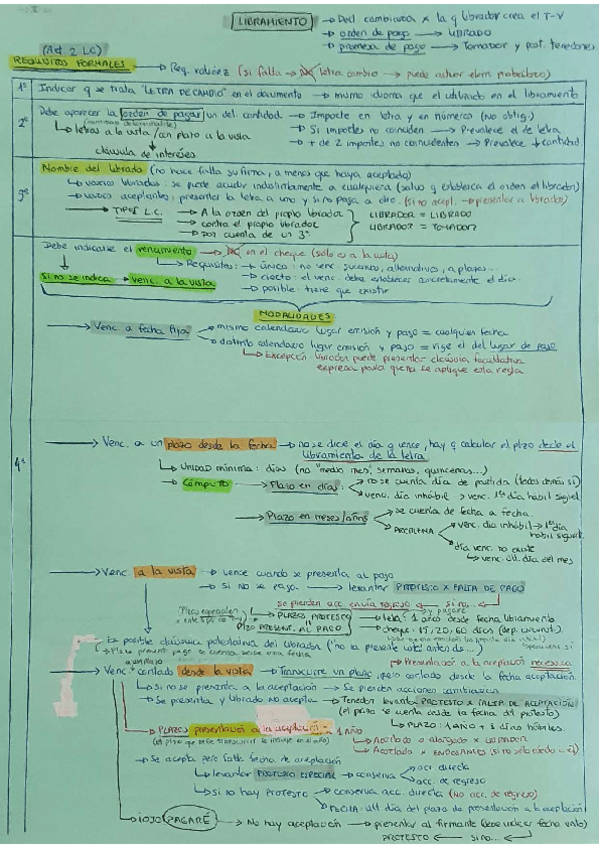 LIBRAMIENTO → Decl. cambiaria x la q librador crea el T-V
→ orden de pago → LIBRADO
→ promesa de pago → Tomador y post. tenedores
(Art 2 LC)
REQUISITOS FORMALES → Req. validez (si falta → NO letra cambio →
1º Indicar q se trata "LETRA DE CAMBIO" en el documento → mismo idioma que el utilizado en el libramiento
2º Debe aparecer la orden de pagar un det. cantidad → Importe en letra y en números (no oblig.)
→ letras a la vista / con plazo a la vista → Si importes no coinciden → Prevalece el de letra
cláusula de intereses → + de 2 importes no coincidentes → Prevalece ↓ cantidad
3º Nombre del librado (no hace falta su firma, a menos que haya aceptado)
→ varios librados: se puede acudir indistintamente a cualquiera (salvo q establezca el orden el librador)
→ varios aceptantes: presentar la letra a uno y si no paga a otro.
→ TIPOS L.C. → A la orden del propio librador
→ contra el propio librador LIBRADOR = LIBRADO
→ por cuenta de un 3º LIBRADOR = TOMADOR
Debe indicarse el vencimiento → NO en el cheque (sólo es a la vista)
→ Requisitos: → único: no venc. sucesivo, alternativo, a plazos...
Si no se indica → venc. a la vista → cierto: el venc. debe establecer concretamente el día
→ posible: tiene que existir
MODALIDADES:
4º
→ Venc. a fecha fija → mismo calendario lugar emisión y pago = cualquier fecha
→ distinto calendario lugar emisión y pago = rige el del lugar de pago
→ Excepción: librador puede presentar cláusula facultativa
expresa para que no se aplique esta regla
→ Venc. a un plazo desde la fecha → no se dice el día q vence, hay q calcular el plzo desde el
libramiento de la letra
→ Unidad mínima: días (no "medio mes", semanas, quincenas...)
→ Cómputo → Plazo en días: → no se cuenta día de partida
→ venc. día inhábil → venc. 1er día hábil
→ Plazo en meses/años → se cuenta de fecha a fecha.
→ PROBLEMA → venc. día inhábil → 1er día
hábil
→ día venc. no existe
→ venc. últ. día del mes
→ Venc. a la vista → vence cuando se presenta al pago
→ si no se paga → levantar PROTESTO x FALTA DE PAGO
Se pierden acc. en vía regreso ← si no...
→ PLAZOS PROTESTO y pagaré
PLZO PRESENT. AL PAGO → letra: 1 año desde fecha libramiento
→ cheque: 15/20/60 días
→ Es posible cláusula potestativa del librador ("no la presente antes de...")
→ Presentación a la aceptación necesaria
→ Venc. contado desde la vista → Transcurre un plazo, pero contado desde la fecha aceptación
→ Si no se presenta a la aceptación → Se pierden acciones cambiarias
→ Se presenta y librado no acepta → Tenedor levanta PROTESTO x FALTA DE ACEPTACIÓN
(el plazo se cuenta desde la fecha del protesto)
→ PLAZO: 1 AÑO + 8 días hábiles.
→ PLAZOS presentación a la aceptación → 1 AÑO
→ Acortado o alargado x LIBRADOR
→ Acortado x ENDOSANTES
→ Se acepta pero falta fecha de aceptación
→ levantar PROTESTO ESPECIAL → conserva → acc. directa
→ acc. de regreso
→ si no hay PROTESTO → conserva acc. directa (NO acc. de regreso)
→ FECHA: últ día del plazo de presentación a la aceptación
→ ¡OJO! PAGARÉ → No hay aceptación → presentar al firmante
PROTESTO ← si no...